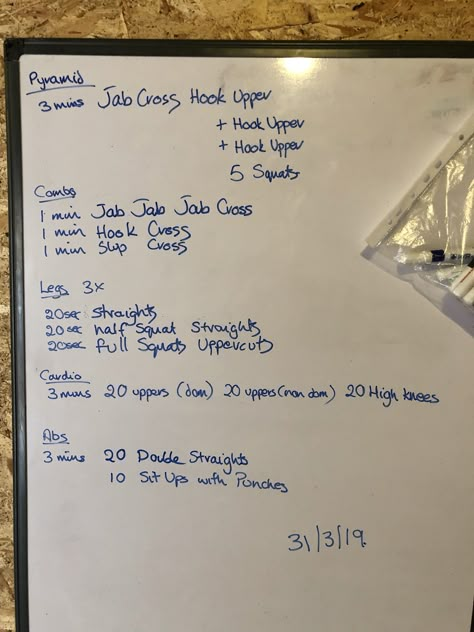 Pyramid
3 mins Jab Cross Hook Upper
+ Hook Upper
+ Hook Upper
5 Squats
Combs
1 min Jab Jab Jab Cross
1 min Hook Cross
1 min Slip Cross
Legs 3x
20sec Straights
20sec half Squat Straights
20sec full Squats Uppercuts
Cardio
3 mins 20 uppers (dom) 20 uppers (non dom) 20 High knees
Abs
3 mins 20 Double Straights
10 Sit Ups with Punches
31/3/19